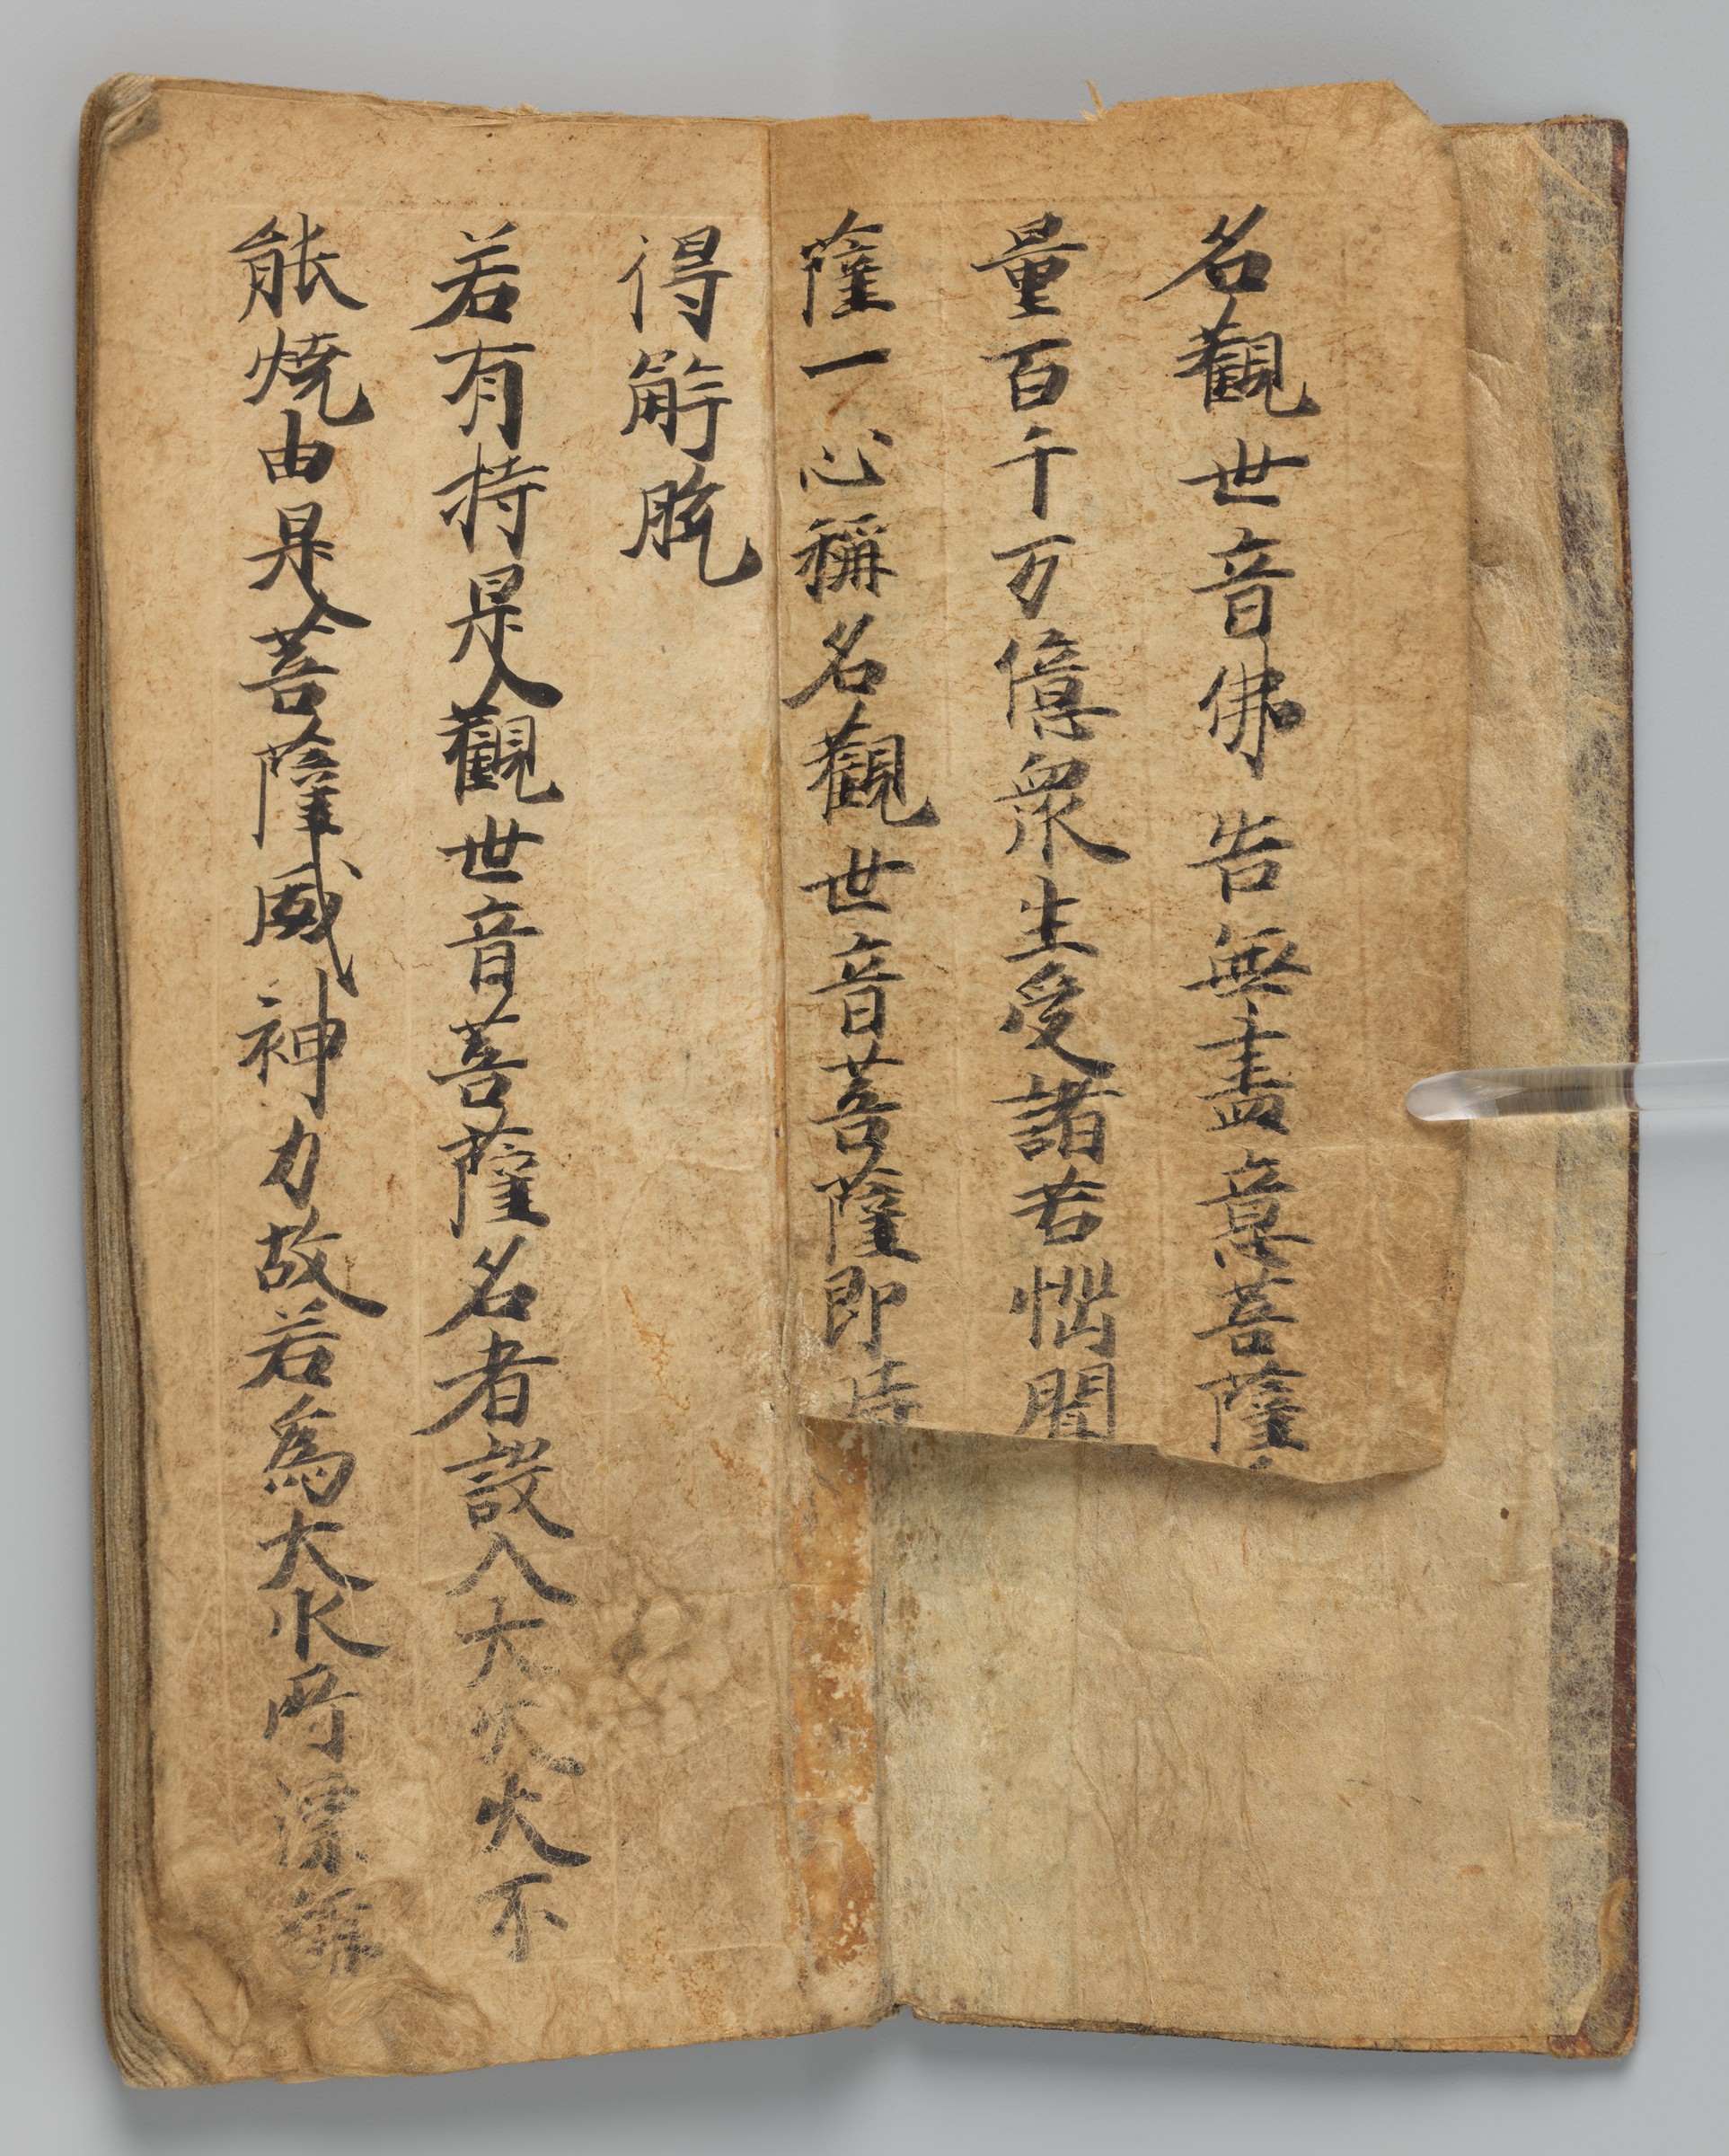 名觀世音佛告無盡意菩薩
量百千万億衆生受諸苦惱聞
薩一心稱名觀世音菩薩即時
得解脫
若有持是觀世音菩薩名者設入大火火不
能燒由是菩薩威神力故若爲大水所漂稱